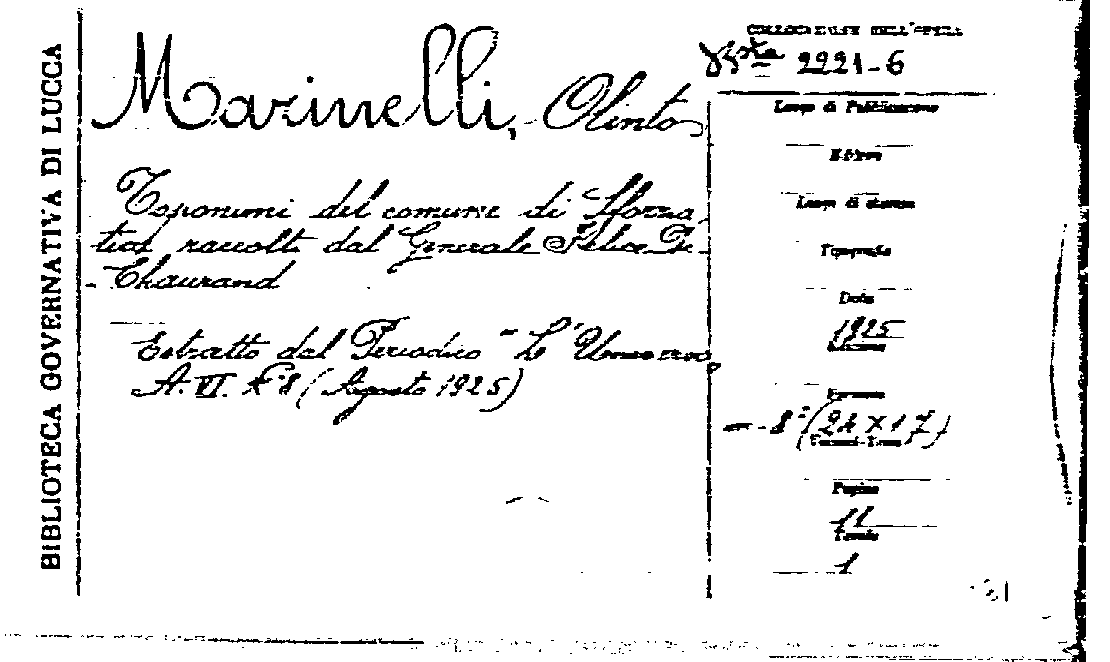 BIBLIOTECA GOVERNATIVA DI LUCCA
Marinelli, Olinto
Toponimi del comune di Sforza-
tica raccolti dal Generale Felice De-
- Chaurand
Estratto dal Periodico "L'Universo,
A. VI. N° 8 (Agosto 1925)
COLLOCAZIONE DELL'OPERA
Bsta 2221-6
Luogo di Pubblicazione
Editore
Luogo di stampa
Tipografia
Data
1925
Edizione
Formato
8° (24 x 17)
Pagine
11
Tavole
1